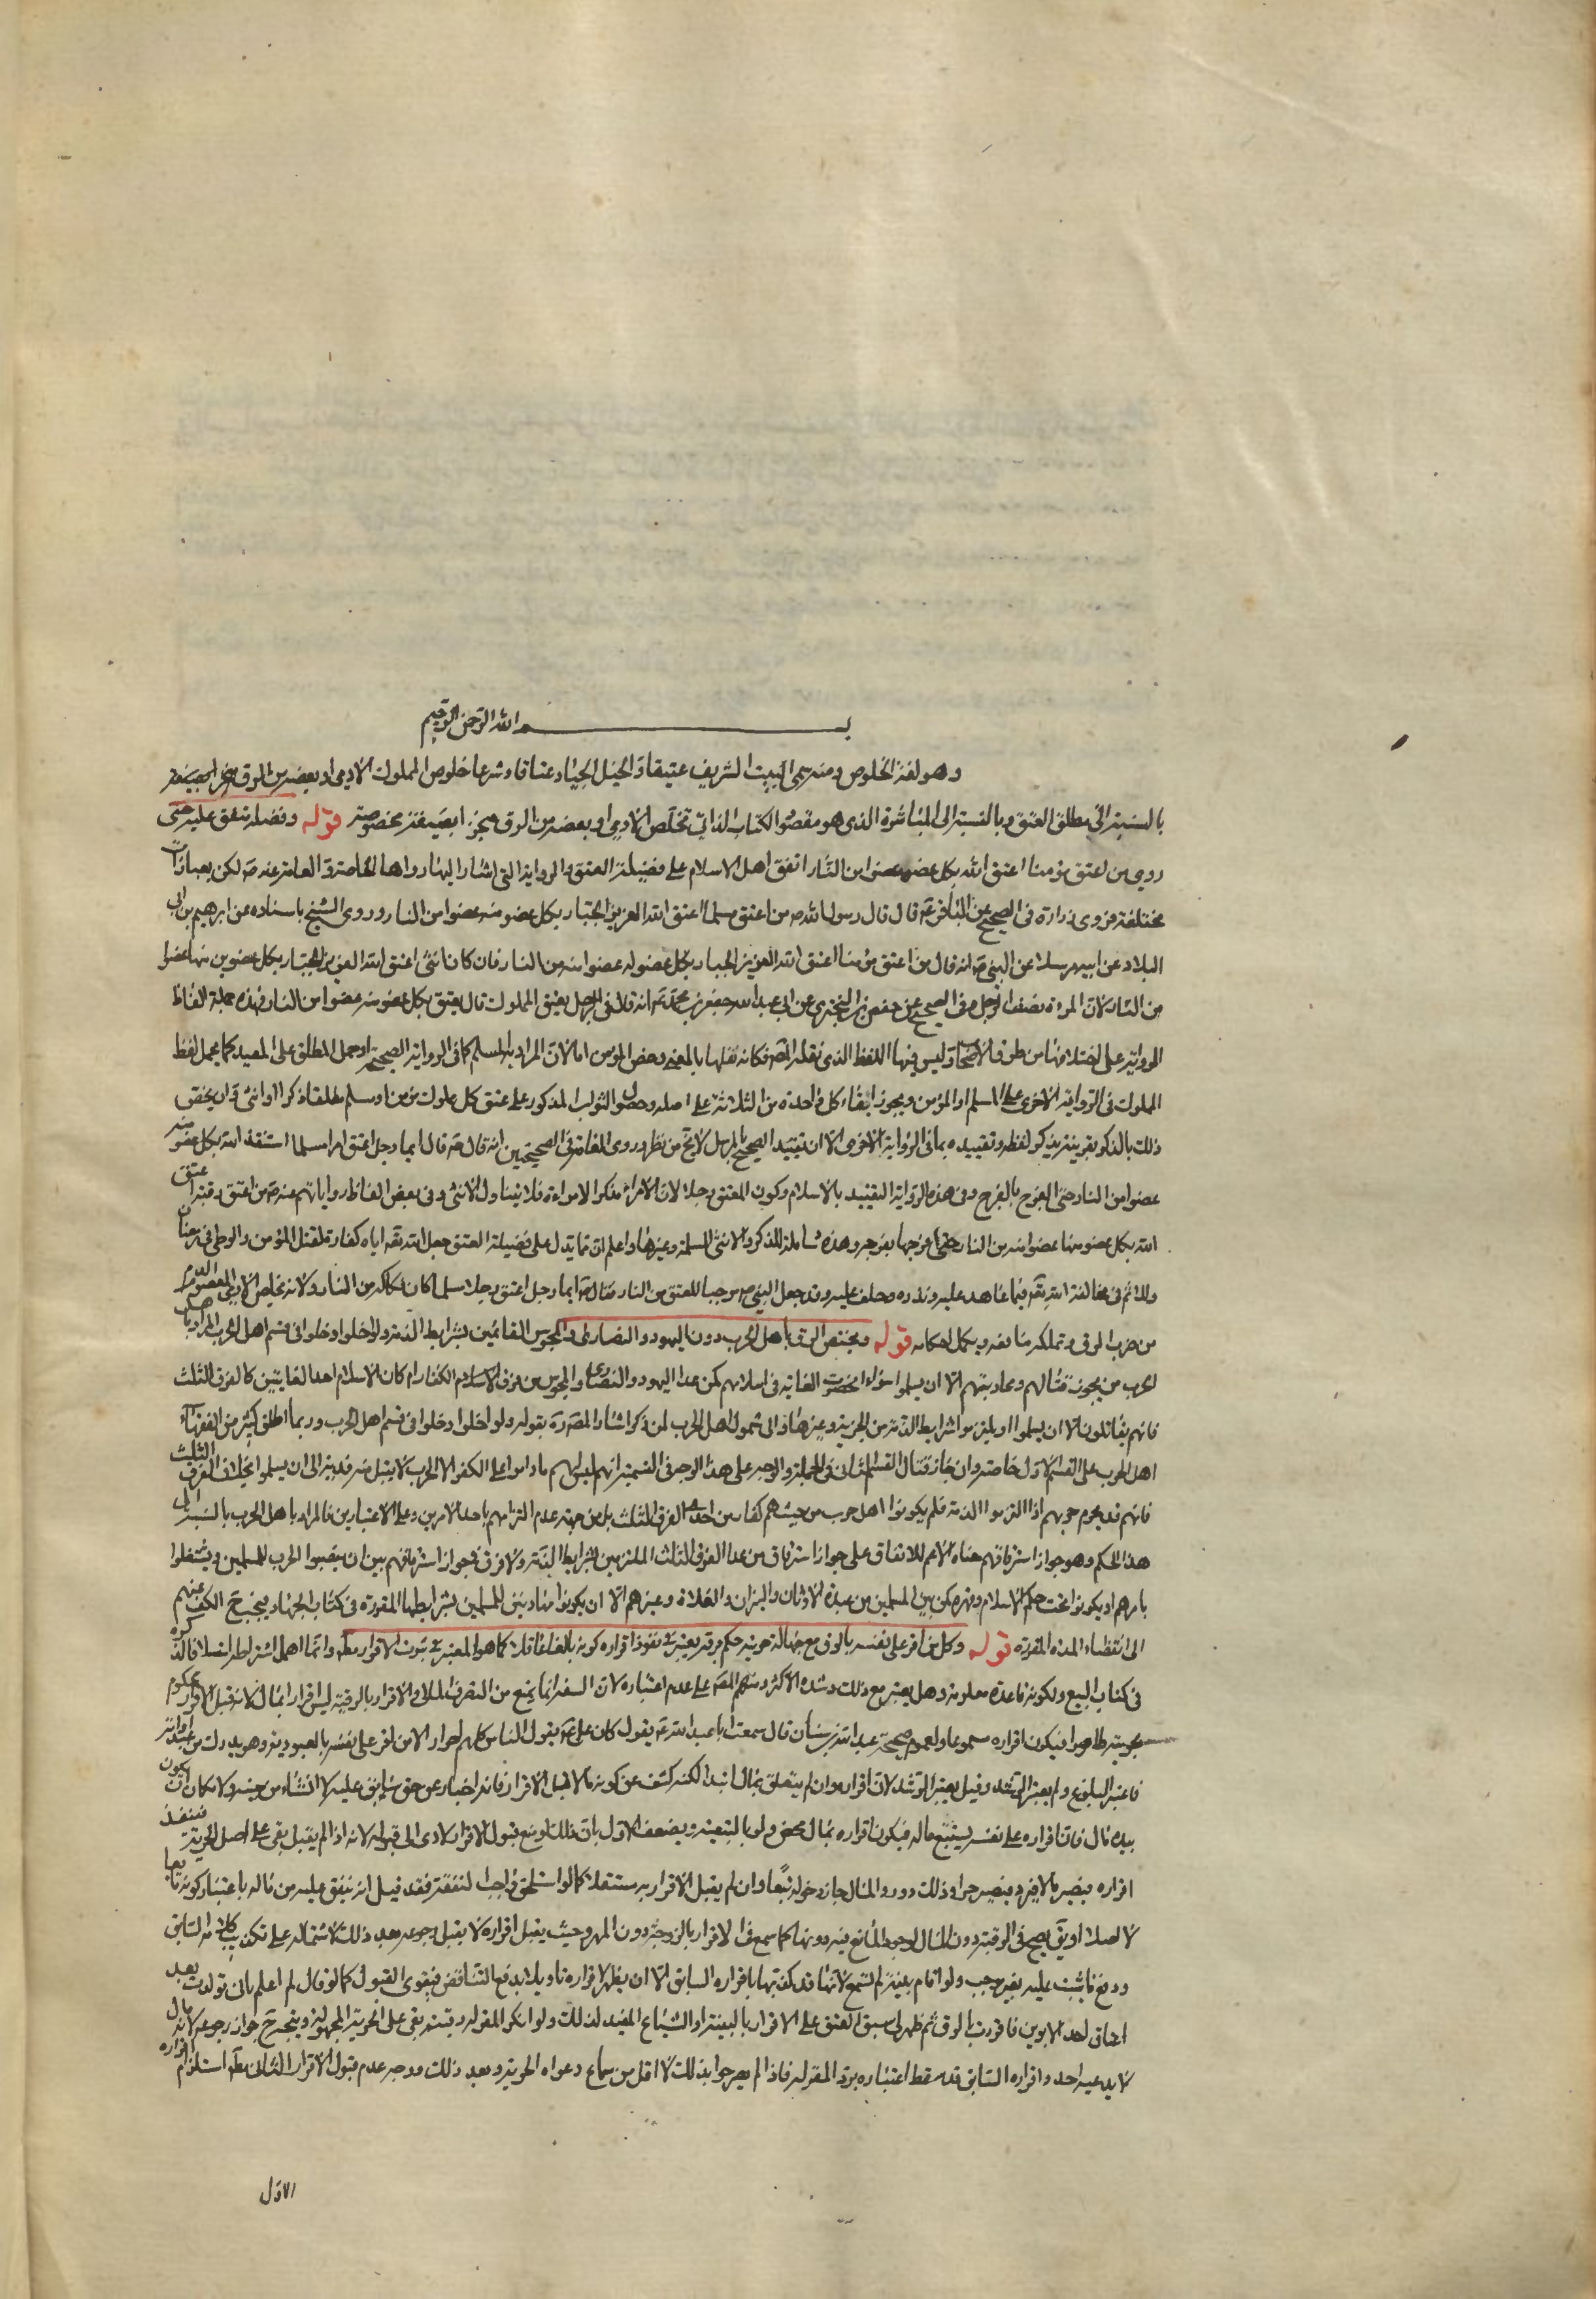 بسم الله الرحمن الرحيم
وهو لغة الخلوص ومنه سمى البيت الشريف عتيقا والخيل الجياد عتاقا وشرعا خلوص المملوك الآدمى او بعضه من الرق
بالنسبة الى مطلق العتق وبالنسبة الى المباشرة الذى هو مقصود الكتاب الذاتى تخلص الآدمى او بعضه من الرق منجزا بصيغة مخصوصة قوله وفضله متفق عليه حتى
روى من اعتق مؤمنا اعتق الله بكل عضو عضوا من النار اتفق اهل الاسلام على فضيلة العتق والرواية التى اشار اليها رواها الخاصة والعامة عنه ص لكن بعبارات
مختلفة فروى زرارة فى الصحيح عن الباقر ع قال قال رسول الله ص من اعتق مسلما اعتق الله العزيز الجبار بكل عضو منه عضوا من النار وروى الشيخ باسناده عن ابرهيم بن ابى
البلاد عن ابيه مرسلا عن النبى ص انه قال من اعتق مؤمنا اعتق الله العزيز الجبار بكل عضو له عضوا منه من النار فان كان انثى اعتق الله العزيز الجبار بكل عضوين منها عضوا
من النار لان المرءة نصف الرجل وفى الصحيح عن حفص بن البخترى عن ابى عبد الله جعفر بن محمد ع انه قال فى الرجل يعتق المملوك قال يعتق بكل عضو منه عضوا من النار فهذه جملة الفاظ
الرواية على اختلافها من طرق الاصحاب وليس فيها اللفظ الذى نقله المصه فكانه نقلها بالمعنى وخص المؤمن اما لان المراد بالمسلم كما فى الرواية الصحيحة او حمل المطلق على المقيد كما يحمل لفظ
المملوك فى الرواية الاخرى على المسلم او المؤمن ويجوز ابقاء كل واحدة من الثلاثة على اصله وحصول الثواب المذكور على عتق كل مملوك مؤمن او مسلم مطلقا ذكرا او انثى وان يختص
ذلك بالذكر بقرينة تذكير لفظه وتقييده بما فى الرواية الاخرى الا ان تقييد الصحيح بالمرسل لا يخ من نظر وروى العامة فى الصحيحين انه قال ص قال ايما رجل اعتق امرا مسلما استنقذ الله بكل عضو منه
عضوا من النار حتى الفرج بالفرج وفى هذه الرواية التقييد بالاسلام وكون المعتق رجلا لان الامراء مذكر الامراءة فلا يتناول الانثى وفى بعض الفاظ رواياتهم عنه ص من اعتق رقبة اعتق
الله بكل عضو منها عضوا منه من النار حتى فرجها بفرجه وهذه شاملة للذكر والانثى المسلمة وغيرها واعلم ان مما يدل على فضيلة العتق جعل الله تعه اياه كفارة لقتل المؤمن والوطى فى رمضان
وللاثم فى مخالفة الله تعه فيما عاهد عليه ونذره وحلف عليه وقد جعل النبى ص موجبا للعتق من النار فقال ص ايما رجل اعتق رجلا مسلما كان فكاكه من النار ولانه تخليص الآدمى المعصوم الدم
من ضرر الرق وتملكه منافعه ويكمل احكامه قوله ويختص الرق باهل الحرب دون اليهود والنصارى والمجوس القائمين بشرايط الذمة ولو اخلوا دخلوا فى قسم اهل الحرب المراد باهل
الحرب من يجوز قتالهم ومحاربتهم الا ان يسلموا سواء انحصرت الغاية فى اسلامهم كمن عدا اليهود والنصارى والمجوس من فرق الاسلام الكفار ام كان الاسلام احد الغايتين كالفرق الثلث
فانهم يقاتلون الا ان يسلموا او يلتزموا شرايط الذمة من الجزية وغيرها والى شمول اهل الحرب لمن ذكر اشار المصه ره بقوله ولو اخلوا دخلوا فى قسم اهل الحرب وربما اطلق كثير من الفقهاء
اهل الحرب على القسم الاول خاصة وان جاز قتال القسم الثانى فى الجملة والوجه على هذا الوجه فى التسمية انهم ليس لهم ما داموا على الكفر الا الحرب لا يقبل منهم فدية الى ان يسلموا بخلاف الفرق الثلث
فانهم قد يحرم حربهم اذا التزموا الذمة فلم يكونوا اهل حرب من حيث هم كفار من احد الفرق الثلث بل من جهة عدم التزامهم باحد الامرين وعلى الاعتبارين فالمراد باهل الحرب بالنسبة الى
هذا الحكم وهو جواز استرقاقهم معناه الاعم للاتفاق على جواز استرقاق من عدا الفرق الثلث الملتزمين بشرايط الذمة ولا فرق فى جواز استرقاقهم بين ان ينصبوا الحرب للمسلمين ويشتغلوا
بامرهم او يكونوا تحت حكم الاسلام وقهره كمن بين المسلمين من عبدة الاوثان والنيران والغلاة وغيرهم الا ان يكونوا مهادنين للمسلمين بشرايطها المقررة فى كتاب الجهاد فيجب ح الكف عنهم
الى انقضاء المدة المقررة قوله وكل من اقر على نفسه بالرق مع جهالة حريته حكم برقه يعتبر فى نفوذ اقراره كونه بالغا عاقلا كما هو المعتبر فى ثبوت الاقرار مطه وانما اهمل اشتراطه اتكالا على ذكره
فى كتاب البيع ولكونه قاعدة معلومة وهل يعتبر مع ذلك رشده الاكثر ومنهم المصه على عدم اعتباره لان السفه انما يمنع من التصرف المالى والاقرار بالرقية ليس اقرارا بمال لانه قبل الاقرار محكوم
بحريته ظاهرا فيكون اقراره مسموعا ولعموم صحيحة عبد الله بن سنان قال سمعت ابا عبد الله ع يقول كان على ع يقول الناس كلهم احرار الا من اقر على نفسه بالعبودية وهو مدرك من عبد او امة
فاعتبر البلوغ ولم يعتبر الرشد وقيل يعتبر الرشد لان اقراره وان لم يتعلق بمال ابتداء لكنه كشف عن كونه مالا قبل الاقرار فانه اخبار عن حق سابق عليه لا انشاء من حينه ولامكان ان يكون
بيده مال فان اقراره على نفسه يستتبع ماله فيكون اقراره بمال محض ولو بالتبعية ويضعف الاول بان ذلك لو منع قبول الاقرار لادى الى قبوله لانه اذا لم يقبل بقى على اصل الحرية فينفذ
اقراره فيصير مالا فيرد فيصير حرا وذلك دور والمال جاز دخوله تبعا وان لم يقبل الاقرار به مستقلا كما لو استلحق واجب النفقة فقد قيل انه ينفق عليه من ماله باعتبار كونه تابعا
لا اصلا او يق يصح فى الرقية دون المال لوجود المانع فيه دونها كما سمع فى الاقرار بالزوجية دون المهر وحيث يقبل اقراره لا يقبل رجوعه بعد ذلك لاشتماله على تكذيب كلامه السابق
ودفع ما ثبت عليه بغير موجب ولو اقام بينة لم تسمع لانها قد كذبها باقراره السابق الا ان يظهر لاقراره تاويلا يدفع التناقض فيقوى القبول كما لو قال لم اعلم بانى تولدت بعد
اعتاق احد الابوين فاقررت بالرق ثم ظهر لى سبق العتق على الاقرار بالبينة او الشياع المفيد لذلك ولو انكر المقر له رقيته بقى على الحرية المجهولة ويتجه ح جواز رجوعه لانه مال
لا يدعيه احد واقراره السابق قد سقط اعتباره برد المقر له فاذا لم يصر حرا بذلك لا اقل من سماع دعواه الحرية بعد ذلك ووجه عدم قبول الاقرار الثانى مطه استلزام اقراره
الاول